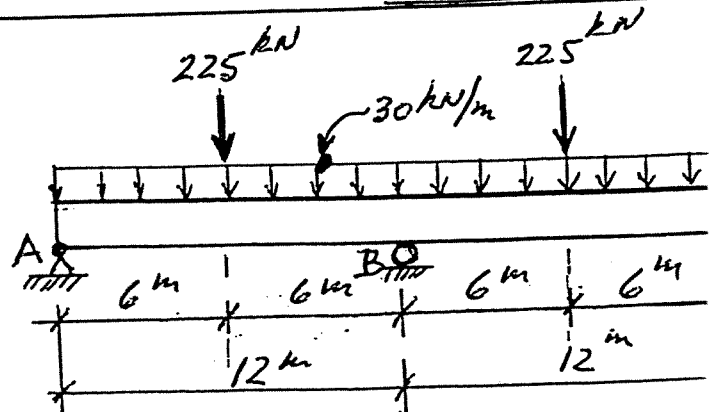 225 kN
225 kN
30 kN/m
A
B
6 m
6 m
6 m
6 m
12 m
12 m